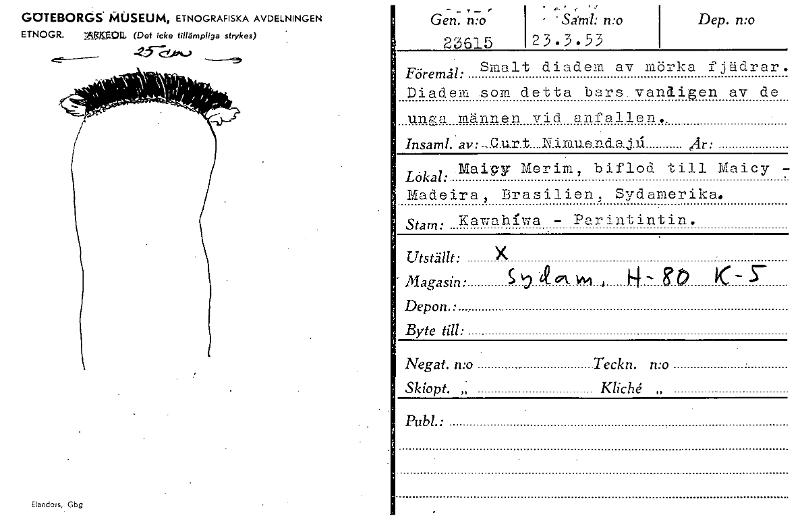 GÖTEBORGS MUSEUM, ETNOGRAFISKA AVDELNINGEN
ETNOGR. ARKEOL. (Det icke tillämpliga strykes)
25 cm
Elanders, Gbg
Gen. n:o Saml: n:o Dep. n:o
23615 23.3.53
Föremål: Smalt diadem av mörka fjädrar.
Diadem som detta bars vanligen av de
unga männen vid anfallen.
Insaml. av: Curt Nimuendajú År:
Lokal: Maicy Merim, biflod till Maicy -
Madeira, Brasilien, Sydamerika.
Stam: Kawahíwa - Parintintin.
Utställt: X
Magasin: Sydam, H-80 K-5
Depon.:
Byte till:
Negat. n:o Teckn. n:o
Skiopt. „ Kliché „
Publ.: